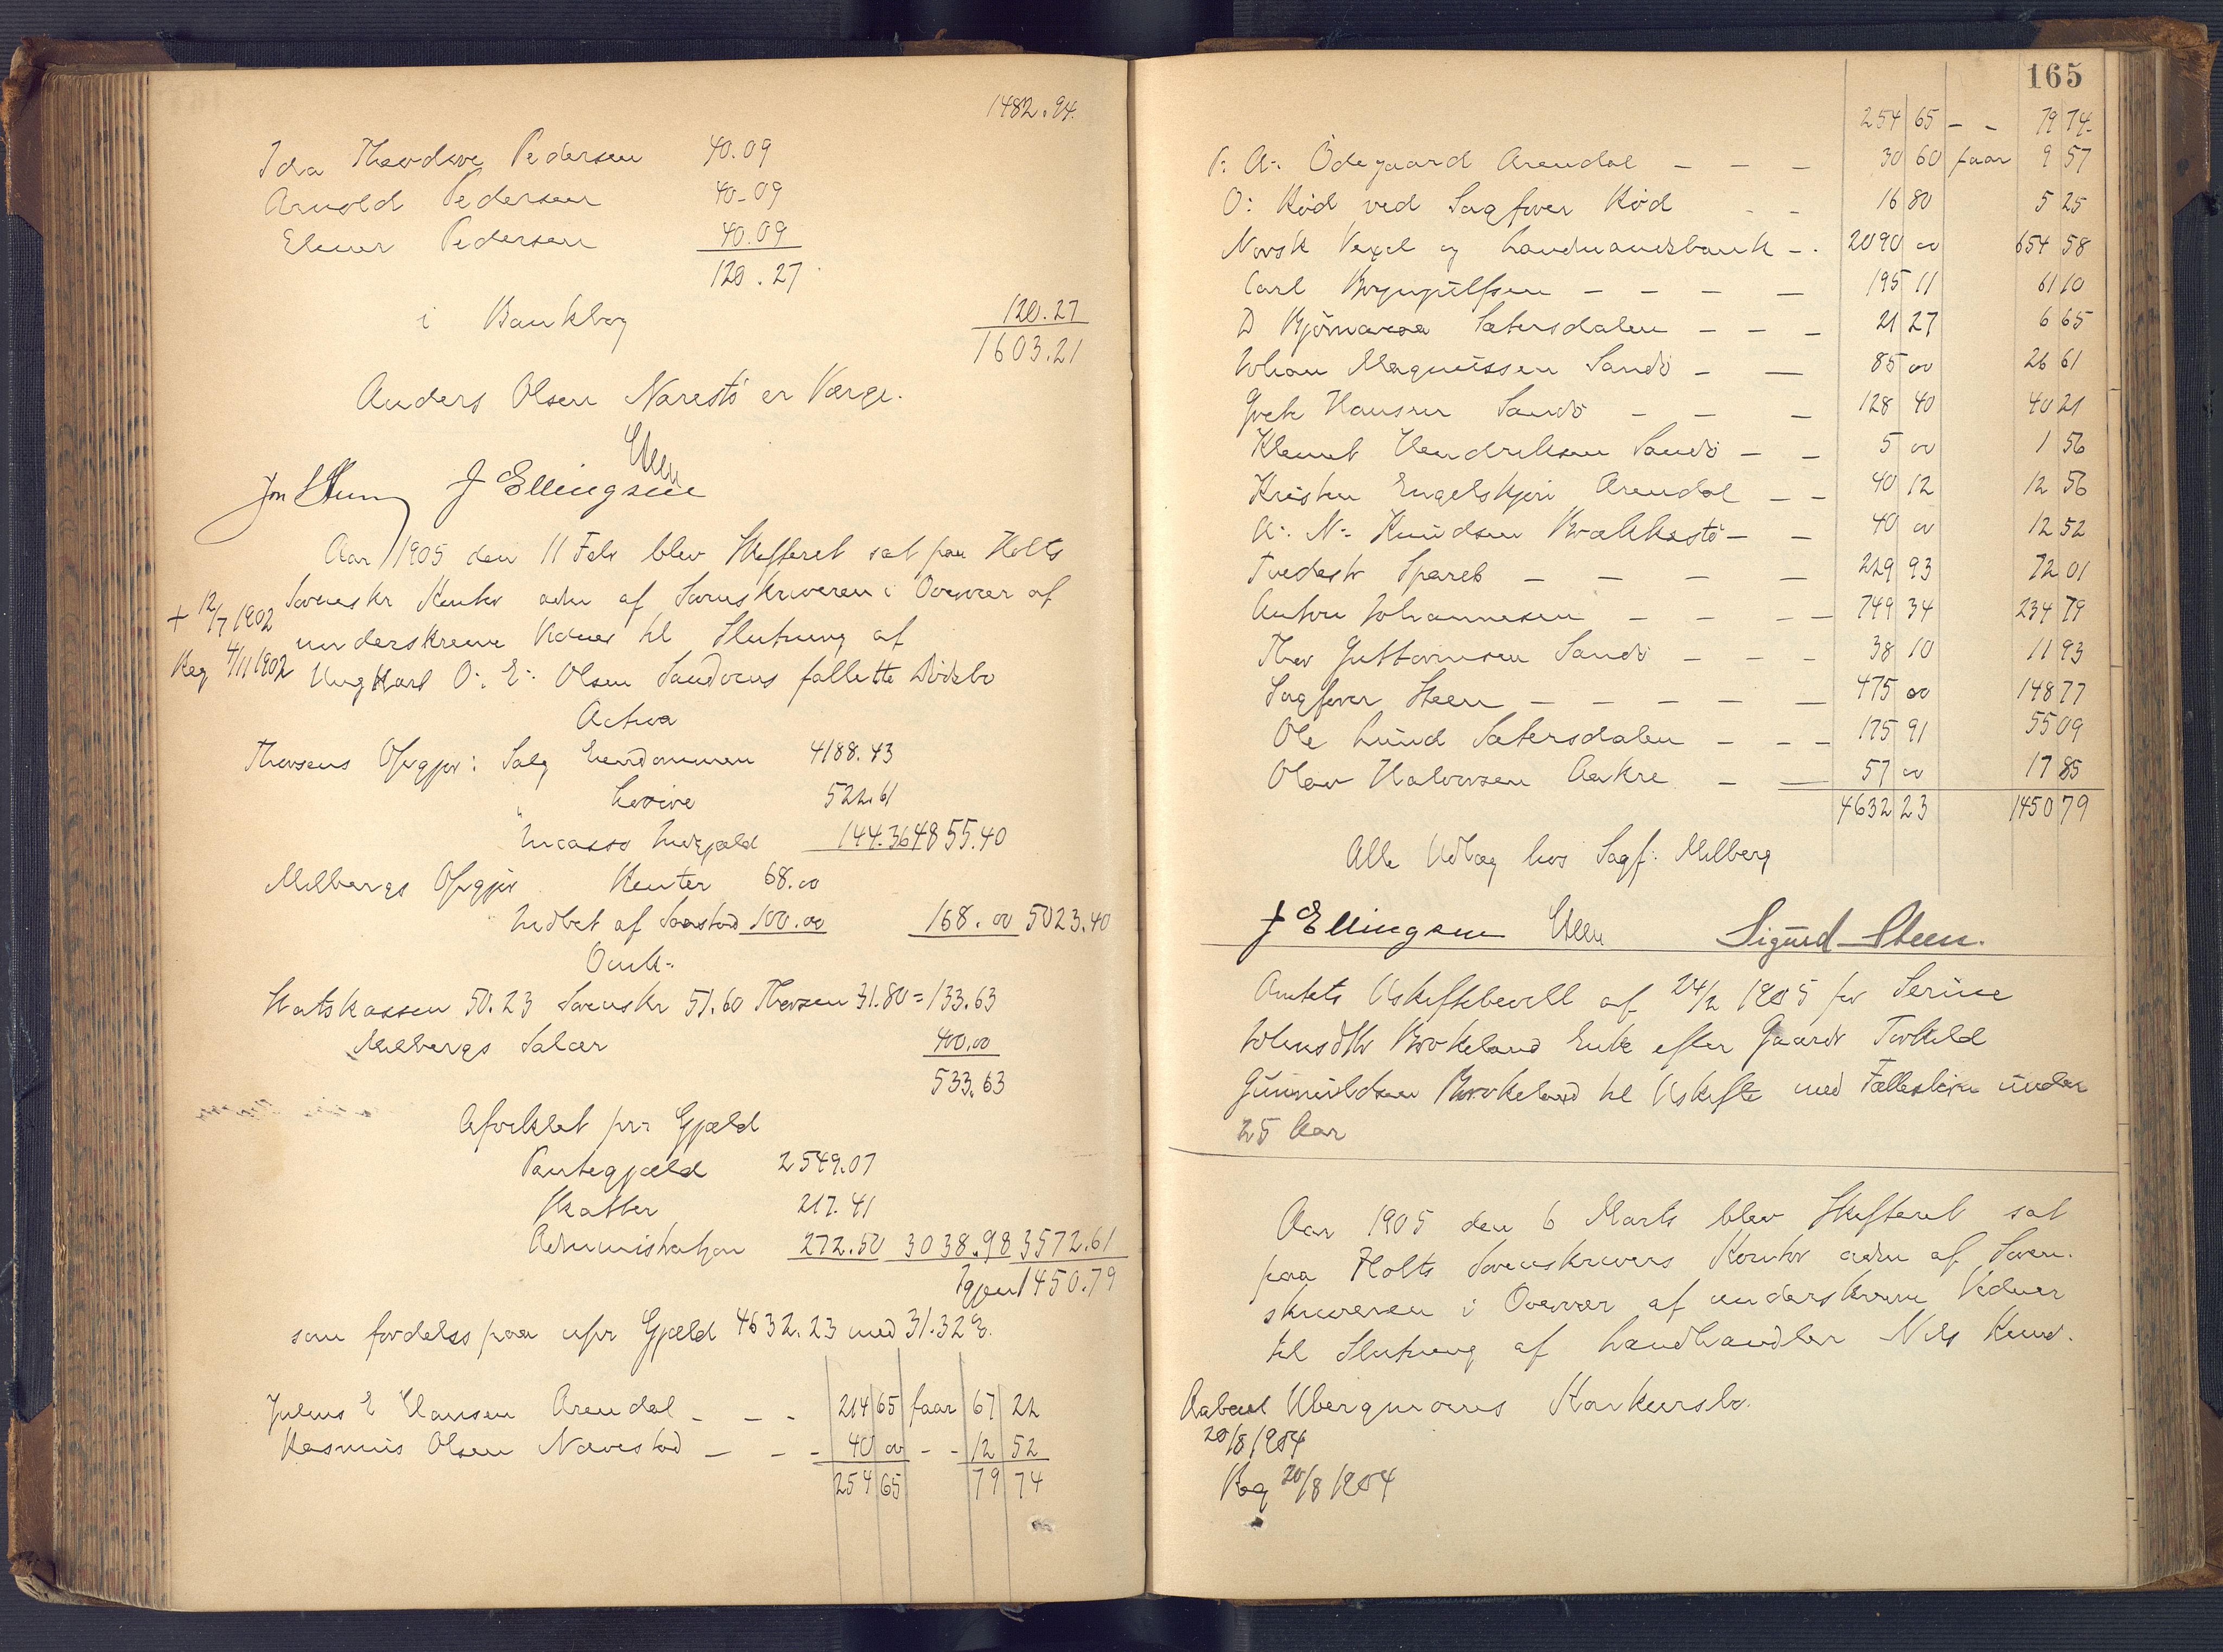 1482.94.
Ida Theodore Pedersen 40.09
Arnold Pedersen 40-09
Elmer Pedersen 40.09
120.27
i Bankbog 120.27
1603.21
Anders Olsen Narestö er Værge.
J Ellingsen
Aar 1905 den 11 Feb blev Skifteret sat paa Holts
Sorenskr Kontor adm af Sorenskriveren i Overvær af
+ 12/7 1902
underskrevne Vidner til Slutning af
Reg 4/11 1902
Ungkarl O: E: Olsen Sandöens fallitte Dödsbo
Activa
Thorsens Opgjør: Salg Eiendommen 4188.43
" Lösöre 522.61
Incasso Indgjæld 144.36 4855.40
Milbergs Opgjör Renter 68.00
Indbet af 100.00 168.00 5023.40
Omk:
Statskassen 50.23 Sorenskr 51.60 Thorsen 31.80 = 133.63
Milbergs Salær 400.00
533.63
Afviklet pr: Gjæld
Pantegjæld 2549.07
Skatter 217.41
Administration 272.50 3038.98 3572.61
Igjen 1450.79
som fordeles paa upr Gjæld 4632.23 med 31.32%.
Julius E Hansen Arendal - - - 214 65 faar 67 22
Rasmus Olsen Nævestad - - - 40 00 - - 12 52
254 65 79 74
165
254 65 - - 79 74
P: A: Ödegaard Arendal - - - 30 60 faar 9 57
O: Röd ved Sagfører Röd - - 16 80 5 25
Norsk Vexel og Landmandsbank - . 2090 00 654 58
Carl Brynjulfsen - - - - 195 11 61 10
D Bjömaraa Sætersdalen - - - 21 27 6 65
Johan Magnussen Sandö - - 85 00 26 61
Hansen Sandö - - - 128 40 40 21
Klemet Hendriksen Sandö - - 5 00 1 56
Kristen Engelskjön Arendal - - 40 12 12 56
A: N: Knudsen Brækkestö - - 40 00 12 52
Tvedestr Spareb - - - - 229 93 72 01
Anton Johannesen - - - - 749 34 234 79
Thor Guttormsen Sandö - - - 38 10 11 93
Sagfører Steen - - - - - 475 00 148 77
Ole Lund Sætersdalen - - - 175 91 55 09
Olav Halvorsen Aakre - - 57 00 17 85
4632 23 1450 79
Alle Udlæg hos Sagf: Milberg
J Ellingsen Sigurd Steen.
Amtets Uskiftebevill af 24/2 1905 for Serine
Brokeland Enke efter Gaardr Torkild
Gunnuldsen Brokeland til Uskifte med Fællesbörn under
25 Aar
Aar 1905 den 6 Marts blev Skifteret sat
paa Holts Sorenskrivers Kontor adm af Soren-
skriveren i Overvær af underskrevne Vidner
til Slutning af Landhandler Nils Knud.
Aabnet Ubergmoens Konkursbo.
20/8 1904
Reg 20/8 1904